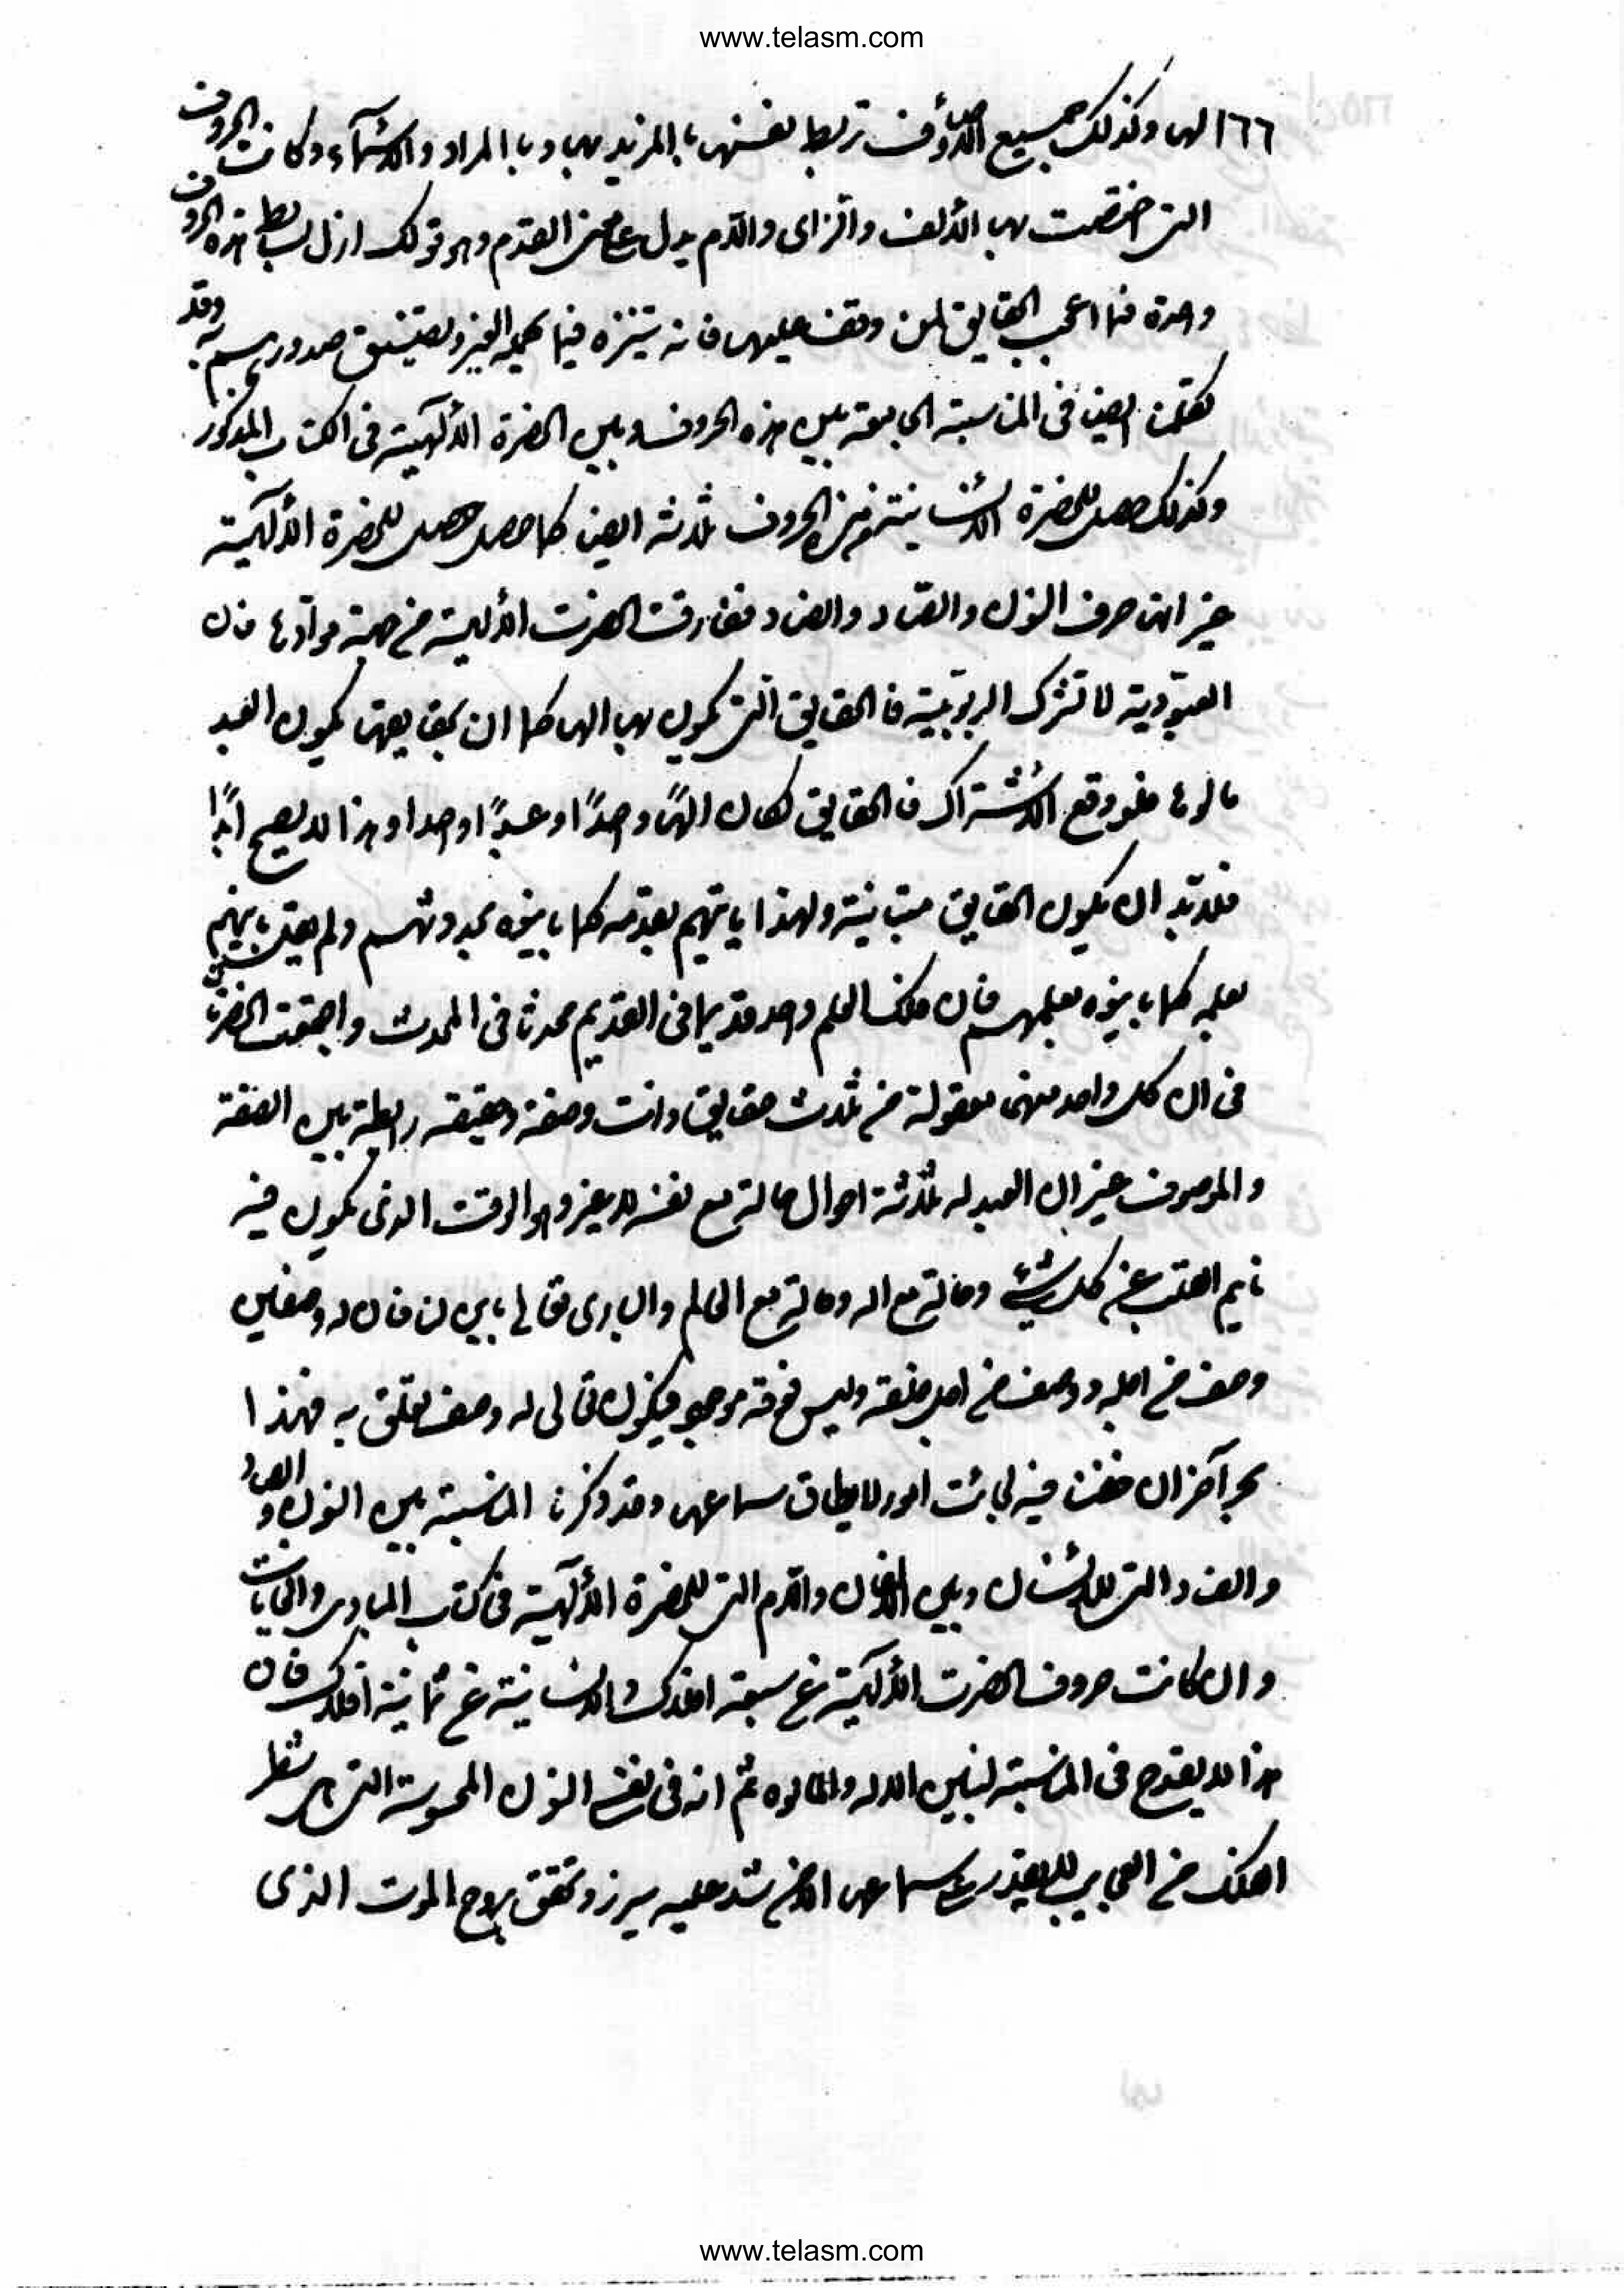 www.telasm.com
١٦٦ لها وكذلك جميع الاوصاف تربط نفسها بالمريد بها وبالمراد والاشياء وكانت الحروف
التى اختصت بها الألف والزاى واللام يدل على معنى القدم وهو قولك ازل بسايط هذه الحروف
وحدة فما اعجب الحقايق لمن وقف عليها فانه يتنزه فيما يجهله الغير ويضيق صدورهم به وقد
تكلمنا ايضا فى المناسبة الجامعة بين هذه الحروف وبين الحضرة الألهية فى الكتاب المذكور
وكذلك حصل للحضرة الانسانية من هذه الحروف ثلاثة ايضا كما حصل حصل للحضرة الألهية
غير انها حرف النون والصاد والضاد ففارقت الحضرت الألهية من جهة موادها فان
العبودية لا تشرك الربوبية فا الحقايق التى يكون بها الها كما ان بحقايقها يكون العبد
مالوها فلو وقع الاشتراك فا الحقايق لكان الهًا واحدًا او عبدًا واحدا وهذا لا يصح ابدًا
فلابد ان يكون الحقايق متباينة ولهذا باينهم بقدمه كما باينوه بحدوثهم ولم يقل باينهم
بعلمه كما باينوه بعلمهم فان فلك العلم واحد قديما فى القديم محدثا فى المحدث واجتمعت الحضرتان
فى ان كل واحد منهما معقولة من ثلاث حقايق ذات وصفة وحقيقه رابطة بين الصفة
والموصوف غير ان العبد له ثلاثة احوال حالة مع نفسه لا غير وهو الوقت الذى يكون فيه
نايم القلب عن كل شئ وحالة مع الله وحالة مع العالم والبارى تعالى مباين لنا فان له وصفين
وصف من اجله ووصف من اجل خلقه وليس فوقه موجود فيكون تعالى له وصف تعلق به فهذا
بحر آخر ان خضنا فيه لجائت امور لا يطاق سماعها وقد ذكرنا المناسبة بين النون والصاد
والضاد التى للانسان وبين الالف والزاى واللام التى للحضرة الألهية فى كتاب المبادى والغايات
وان كانت حروف الحضرت الألهية عن سبعة افلاك والانسانية عن ثمانية افلاك فان
هذا لا يقدح فى المناسبة لتبيين الاله والمالوه ثم انه فى نفس النون المحسوسة التى هى شطر
الفلك من العجايب ما لا يقدر على سماعها الا من شد عليه ميزر وتحقق بروح الموت الذى
www.telasm.com